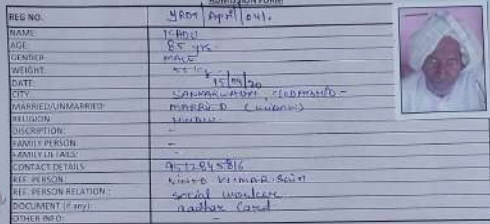 ADMISSION FORM
REG NO. YROM/April/041.
NAME:
AGE: 85 yrs
GENDER: MALE
WEIGHT:
DATE: 15/04/20
CITY:
MARRIED/UNMARRIED: MARRIED
RELIGION HINDU
DISCRIPTION: -
FAMILY PERSON: -
FAMILY DETAILS: -
CONTACT DETAILS 9512845816
REF. PERSON: KUMAR
REF. PERSON RELATION: social worker
DOCUMENT (if any): aadhar card
OTHER INFO: -